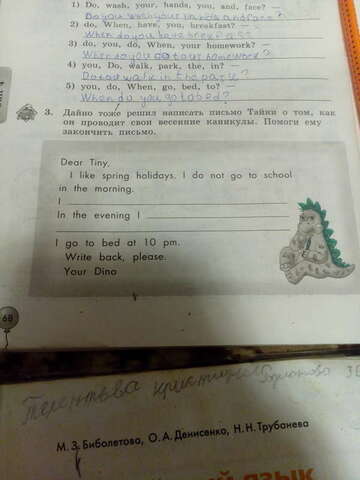 1) Do, wash, your, hands, you, and, face? —
Do you wash your hands and face?
2) do, When, have, you, breakfast? —
When do you have breakfast?
3) do, you, do, When, your homework? —
When do you do your homework?
4) you, Do, walk, park, the, in? —
Do you walk in the park?
5) you, do, When, go, bed, to? —
When do you go to bed?
3. Дайно тоже решил написать письмо Тайни о том, как
он проводит свои весенние каникулы. Помоги ему
закончить письмо.
Dear Tiny,
I like spring holidays. I do not go to school
in the morning.
I
In the evening I
I go to bed at 10 pm.
Write back, please.
Your Dino
68
3Б
М. З. Биболетова, О. А. Денисенко, Н. Н. Трубанева